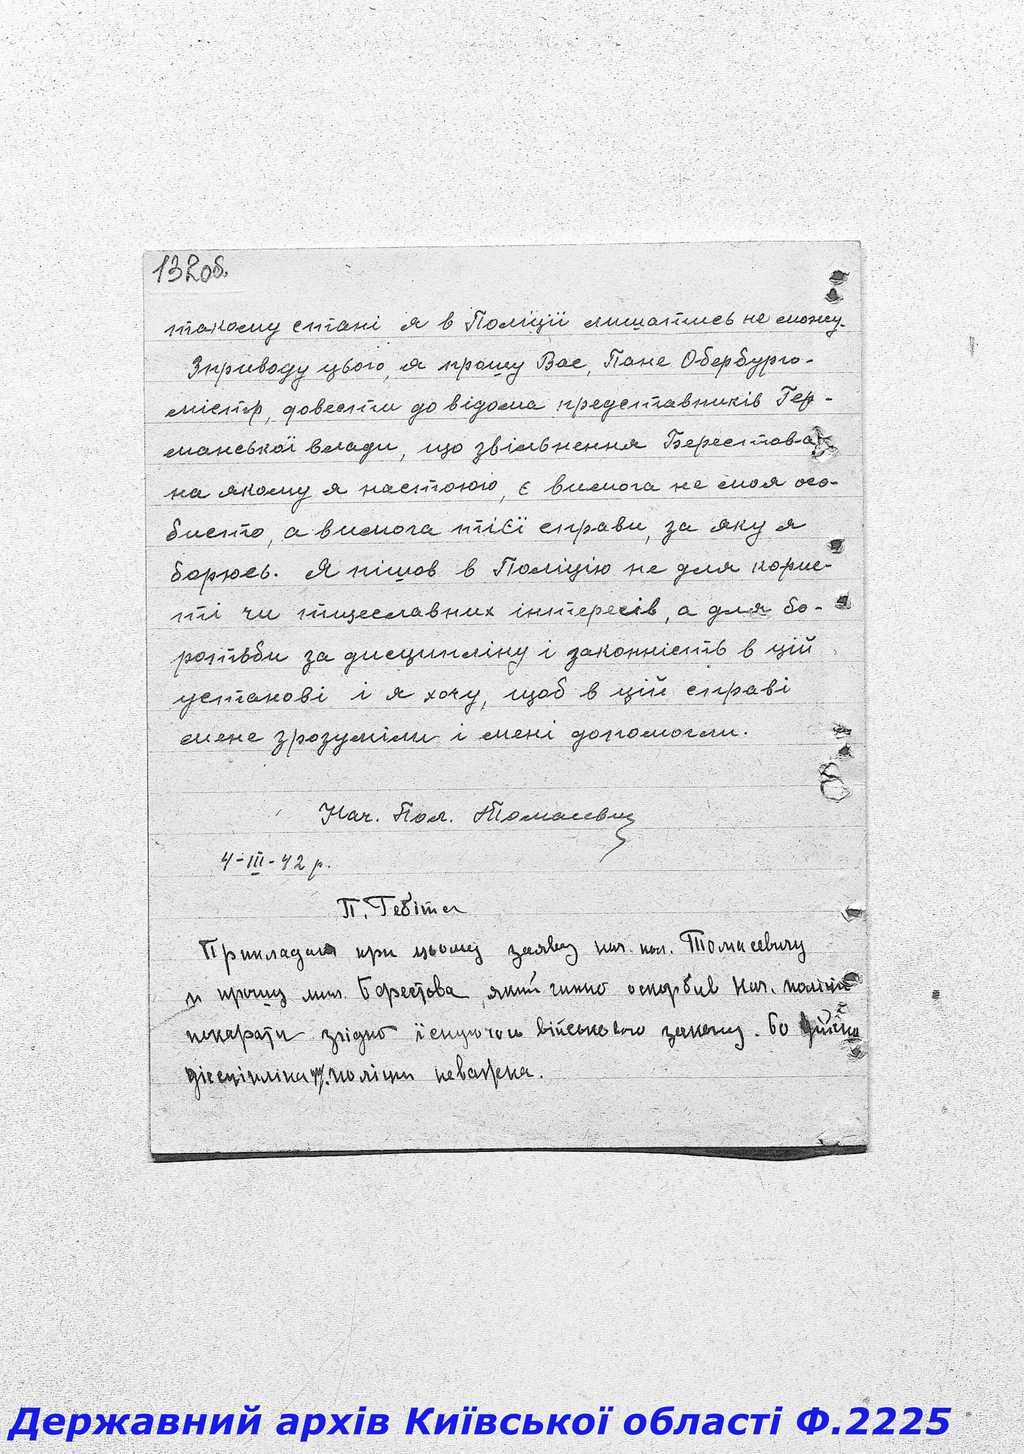 132об.
такому стані я в Поліції лишатись не можу.
Зприводу цього, я прошу Вас, Пане Обербурго-
містр, довести до відома представників Гер-
манської влади, що звільнення Берестова
на якому я настоюю, є вимога не моя осо-
бисто, а вимога тієї справи, за яку я
борюсь. Я пішов в Поліцію не для корис-
ті чи тщеславних інтересів, а для бо-
ротьби за дисципліну і законність в цій
установі і я хочу, щоб в цій справі
мене зрозуміли і мені допомогли.
Нач. Пол. Томасевич
4-III-42 р.
П. Гебітск
Прикладаю при цьому заяву нач. пол. Томасевичу
и прошу Берестова, який оскорбив Нач. поліції
покарати згідно військового закону. Бо
поліции неважна.
Державний архів Київської області Ф.2225